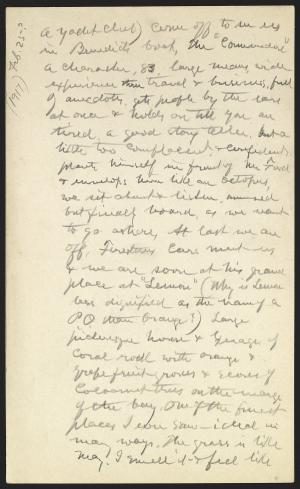 (1917) Feb. 25-2
a yacht club) Come off to us
in Benedict's boat, the "Commodore"
a character, 83, large means, wide
experience travel & business, full
of anecdote, gets people by the ear
at once & holds on till you are
tired, a good story teller, but a
little too complacent &
plants himself in front of Mr. Ford
& envelops him like an octopus,
we sit about & listen, amused
but finally bored, as we want
to go ashore. At last we are
off, Firestone's cars meet us
& we are soon at his grand
place at "Lemon" (Why is Lemon
less dignified as the name of a
P.O. than Orange?) Large
picturesque house & garage of
coral rock with orange &
grapefruit groves & scores of
cocoanut trees on the margin
of the bay. One of the finest
places I ever saw - ideal in
many ways. The grass is like
May. I smell it & feel like